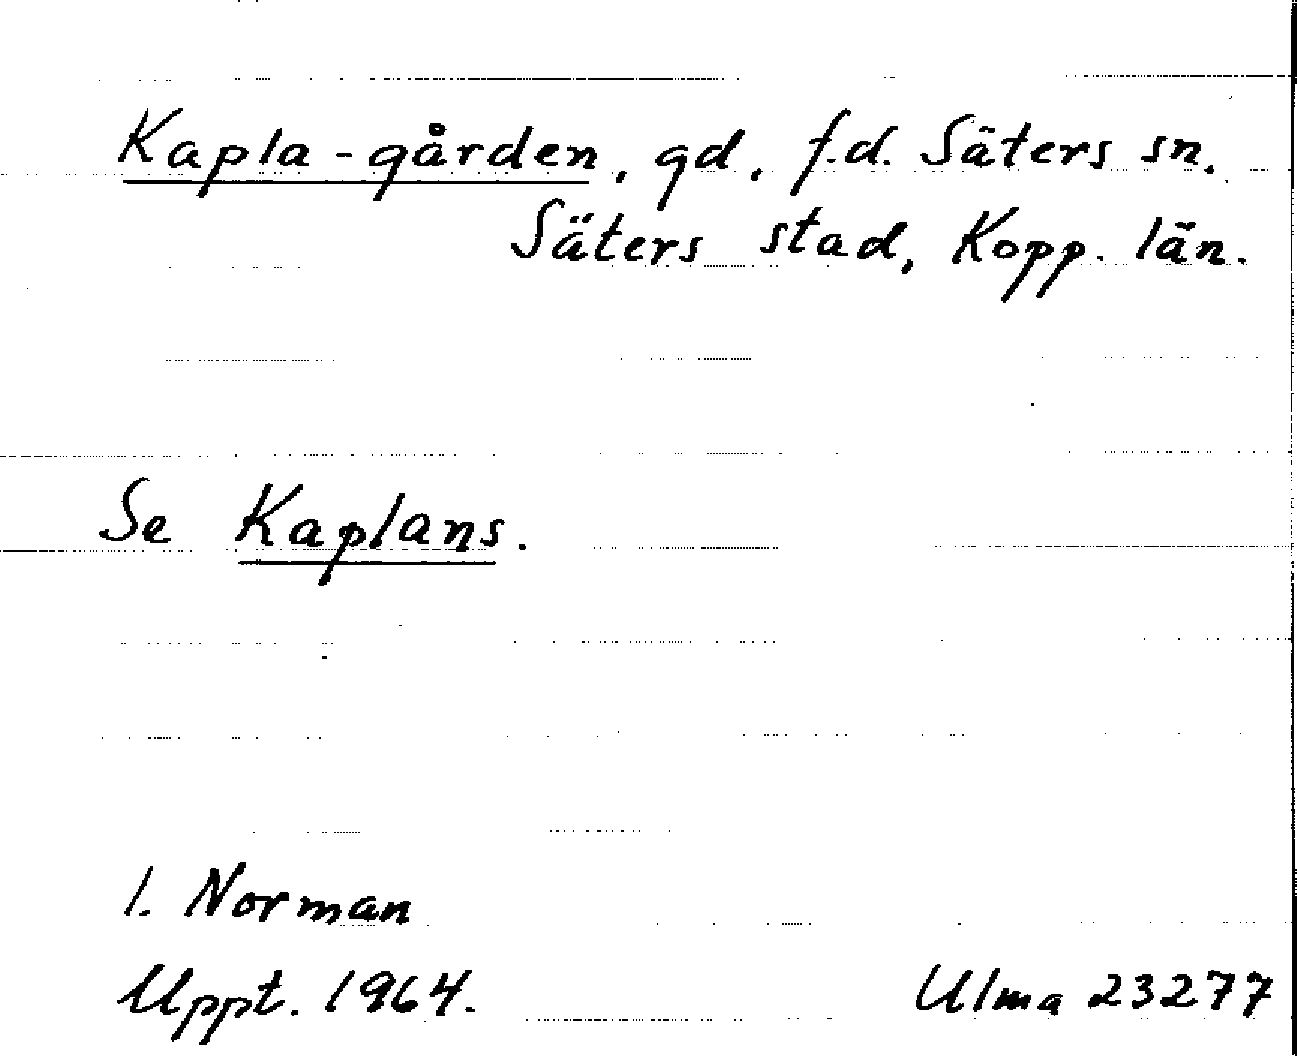 Kapla-gården, gd, f.d. Säters sn.
Säters stad, Kopp. län.
Se Kaplans.
I. Norman
Uppt. 1964.
Ulma 23277